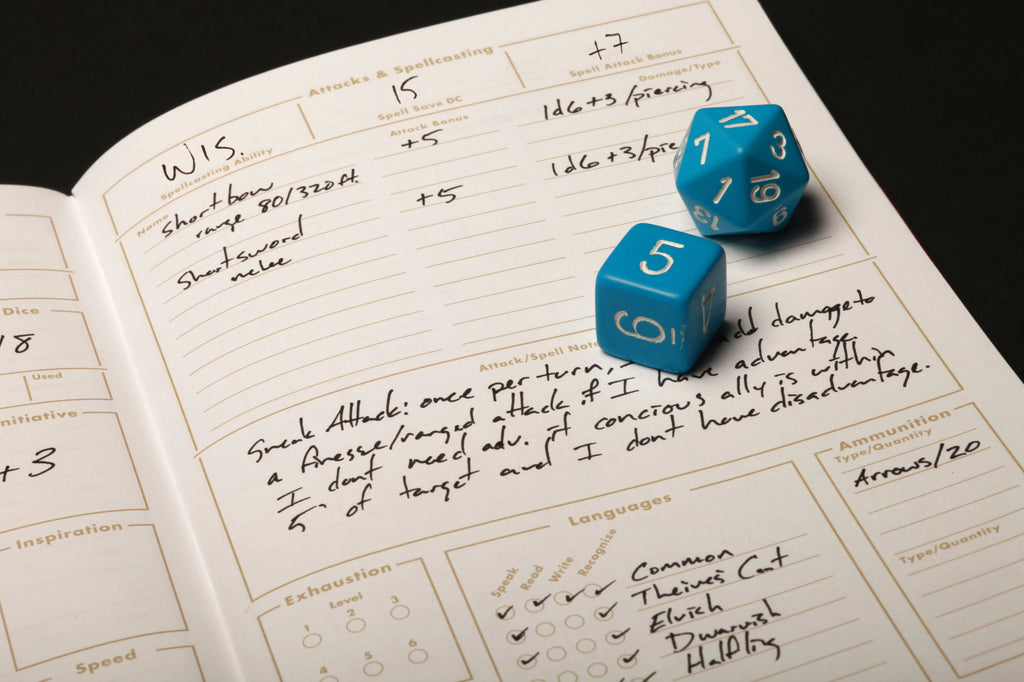 Attacks & Spellcasting
WIS.
Spellcasting Ability
15
Spell Save DC
+7
Spell Attack Bonus
Name
Attack Bonus
Damage/Type
Shortbow
range 80/320ft.
+5
1d6+3/piercing
Shortsword
+5
1d6+3/pie
17
7
3
1
19
13
9
5
6
4
Attack/Spell Not
Sneak Attack: once per turn, add damage to
a finesse/ranged attack if I have advantage
I dont need adv. if concious ally is within
5' of target and I dont have disadvantage.
Dice
Used
+3
Inspiration
Speed
Exhaustion
Level
1
2
3
4
5
6
Languages
Speak
Read
Write
Recognize
Common
Theives Cant
Elvish
Dwarvish
Halfling
Ammunition
Type/Quantity
Arrows/20
Type/Quantity